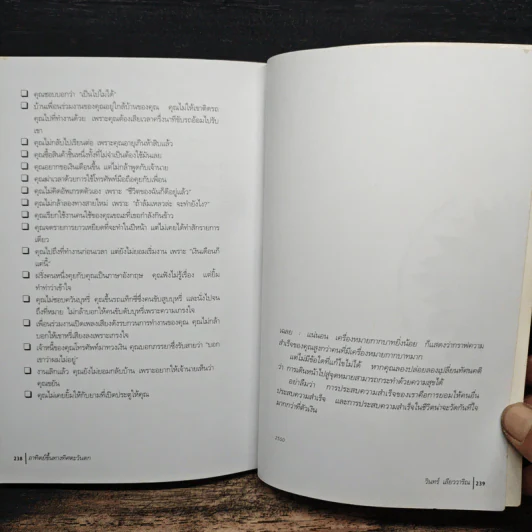 ❑ คุณชอบบอกว่า "เป็นไปไม่ได้"
❑ บ้านเพื่อนร่วมงานของคุณอยู่ใกล้บ้านของคุณ คุณไม่ให้เขาติดรถ
คุณไปที่ทำงานด้วย เพราะคุณต้องเสียเวลาครึ่งนาทีขับรถอ้อมไปรับ
เขา
❑ คุณไม่กลับไปเรียนต่อ เพราะคุณอายุเกินห้าสิบแล้ว
❑ คุณซื้อสินค้าชิ้นหนึ่งทั้งที่ไม่จำเป็นต้องใช้มันเลย
❑ คุณอยากขอเงินเดือนขึ้น แต่ไม่กล้าพูดกับเจ้านาย
❑ คุณฆ่าเวลาด้วยการใช้โทรศัพท์มือถือคุยกับเพื่อน
❑ คุณไม่คิดอัพเกรดตัวเอง เพราะ "ชีวิตของฉันก็ดีอยู่แล้ว"
❑ คุณไม่กล้าลองทางสายใหม่ เพราะ "ถ้าล้มเหลวล่ะ จะทำยังไง?"
❑ คุณเรียกใช้งานคนใช้ของคุณขณะที่เธอกำลังกินข้าว
❑ คุณจดรายการยาวเหยียดที่จะทำในปีหน้า แต่ไม่เคยได้ทำสักรายการ
เดียว
❑ คุณไปถึงที่ทำงานก่อนเวลา แต่ยังไม่ยอมเริ่มงาน เพราะ "เงินเดือนก็
แค่นี้"
❑ ฝรั่งคนหนึ่งคุยกับคุณเป็นภาษาอังกฤษ คุณฟังไม่รู้เรื่อง แต่ยิ้ม
ทำท่าว่าเข้าใจ
❑ คุณไม่ชอบควันบุหรี่ คุณขึ้นรถแท็กซี่ซึ่งคนขับสูบบุหรี่ และนั่งไปจน
ถึงที่หมาย ไม่กล้าบอกให้คนขับดับบุหรี่เพราะความเกรงใจ
❑ เพื่อนร่วมงานเปิดเพลงเสียงดังรบกวนการทำงานของคุณ คุณไม่กล้า
บอกให้เขาหรี่เสียงลงเพราะเกรงใจ
❑ เจ้าหนี้ของคุณโทรศัพท์มาทวงเงิน คุณบอกภรรยาซึ่งรับสายว่า "บอก
เขาว่าผมไม่อยู่"
❑ งานเลิกแล้ว คุณยังไม่ยอมกลับบ้าน เพราะอยากให้เจ้านายเห็นว่า
คุณขยัน
❑ คุณไม่เคยยิ้มให้กับยามที่เปิดประตูให้คุณ
238 | อาทิตย์ขึ้นทางทิศตะวันตก
เฉลย - แน่นอน เครื่องหมายกากบาทยิ่งน้อย ก็แสดงว่ากราฟความ
สำเร็จของคุณสูงกว่าคนที่มีเครื่องหมายกากบาทมาก
แต่ไม่มีข้อใดที่แก้ไขไม่ได้ หากคุณลองปล่อยลองเปลี่ยนทัศนคติ
ว่า การเดินหน้าไปสู่จุดหมายสามารถกระทำด้วยความสุขได้
อย่าลืมว่า การประสบความสำเร็จของเราคือการยอมให้คนอื่น
ประสบความสำเร็จ และการประสบความสำเร็จในชีวิตน่าจะวัดกันที่ใจ
มากกว่าที่ตัวเงิน
วินทร์ เลียววาริณ | 239